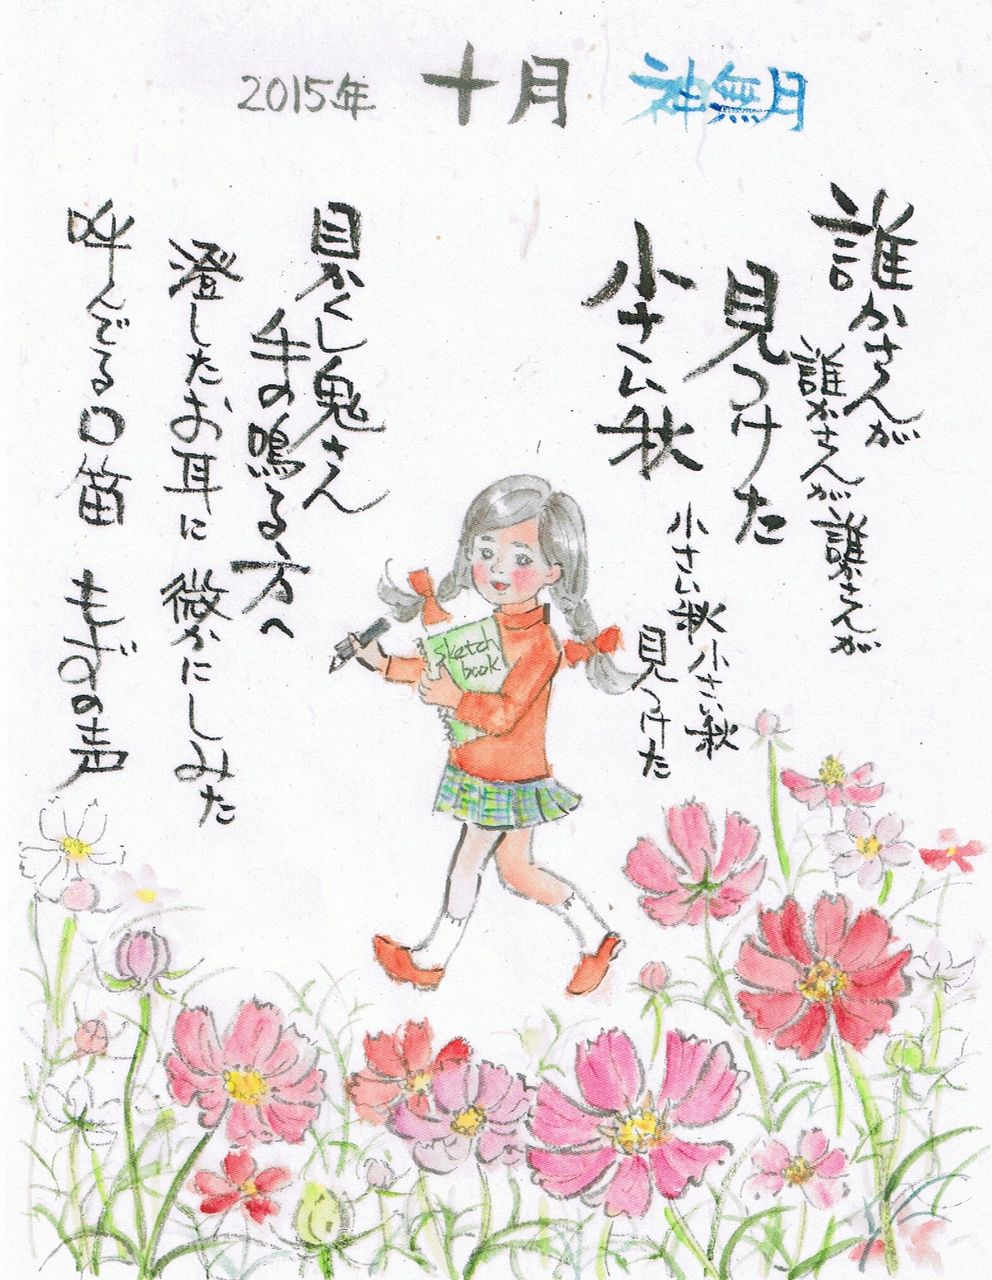 2015年 十月 神無月
誰かさんが
誰かさんが誰かさんが
見つけた
小さい秋
小さい秋小さい秋
見つけた
目かくし鬼さん
手の鳴る方へ
澄したお耳に 微かにしみた
呼んでる口笛 もずの声
sketch
book